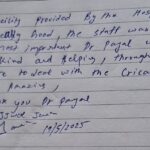 cility Provided By the Hos
ally Good, the staff was
most important Dr Payal w
kind and Helping, through
re to deal with the Critica
Dr Payal
19/5/2025